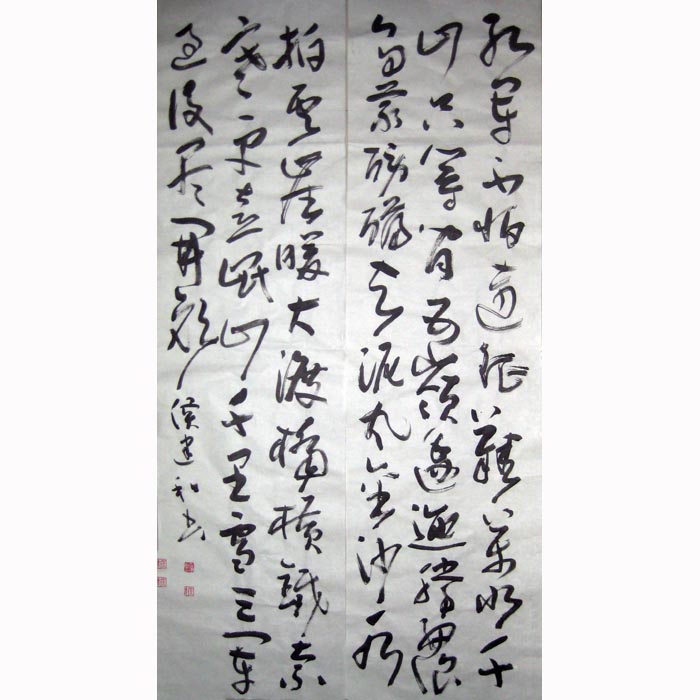 红军不怕远征难万水千
山只等闲五岭逶迤腾细浪
乌蒙磅礴走泥丸金沙水
拍云崖暖大渡桥横铁索
寒更喜岷山千里雪三军
过后尽开颜 侯建和书